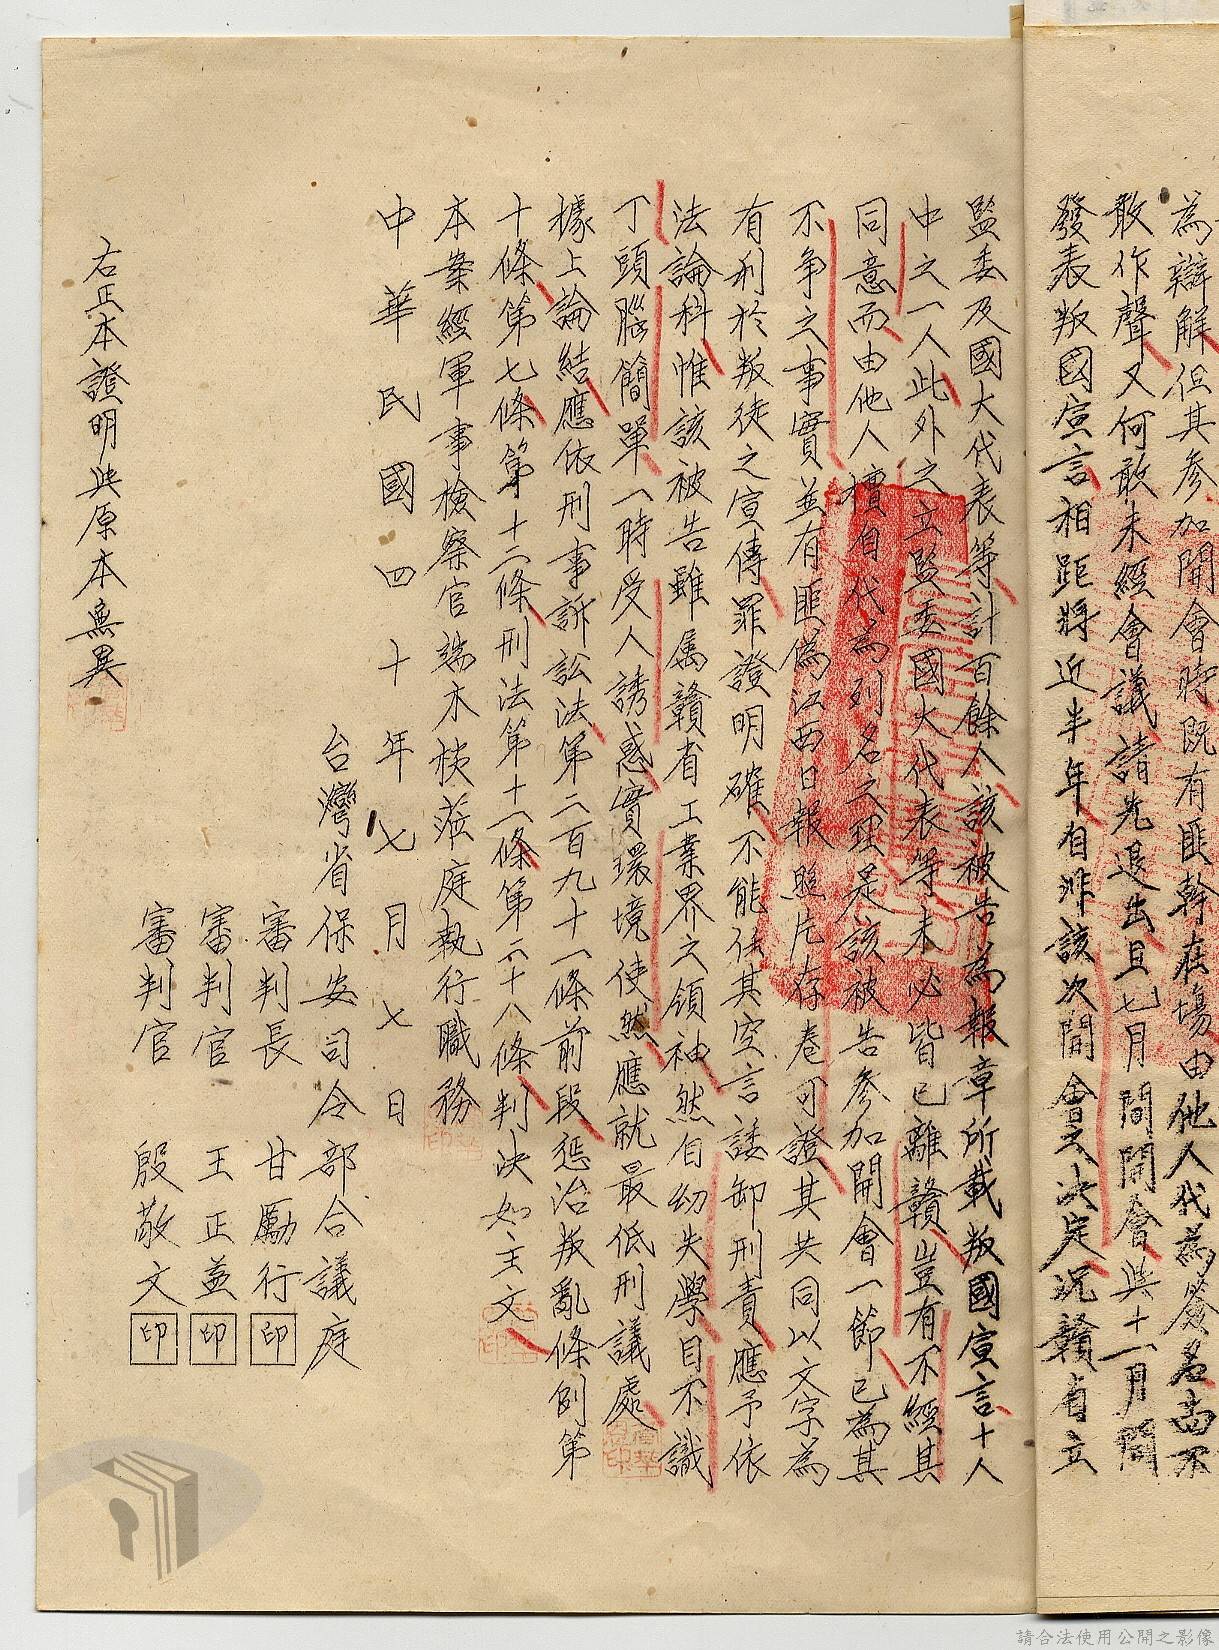 為辯解但其參加開會時既有匪幹在場由他人代為簽名尚不
敢作聲又何敢未經會議請先退出且七月間開會與十一月間
發表叛國宣言相距將近半年自非該次開會之決定況贛省立
監委及國大代表等計百餘人該被告為報章所載叛國宣言十人
中之一人此外之立監委國大代表等未必皆已離贛豈有不經其
同意而由他人擅自代為列名之理是該被告參加開會一節已為其
不爭之事實並有匪偽江西日報照片存卷可證其共同以文字為
有利於叛徒之宣傳罪證明確不能任其空言諉卸刑責應予依
法論科惟該被告雖屬贛省工業界之領袖然自幼失學目不識
丁頭腦簡單一時受人誘惑實環境使然應就最低刑議處
據上論結應依刑事訴訟法第二百九十一條前段懲治叛亂條例第
十條第七條第十二條刑法第十一條第二十八條判決如主文
本案經軍事檢察官端木棪蒞庭執行職務
中華民國四十年七月七日
台灣省保安司令部合議庭
審判長 甘勵行 印
審判官 王正蓋 印
審判官 殷敬文 印
右正本證明與原本無異
請合法使用公開之影像